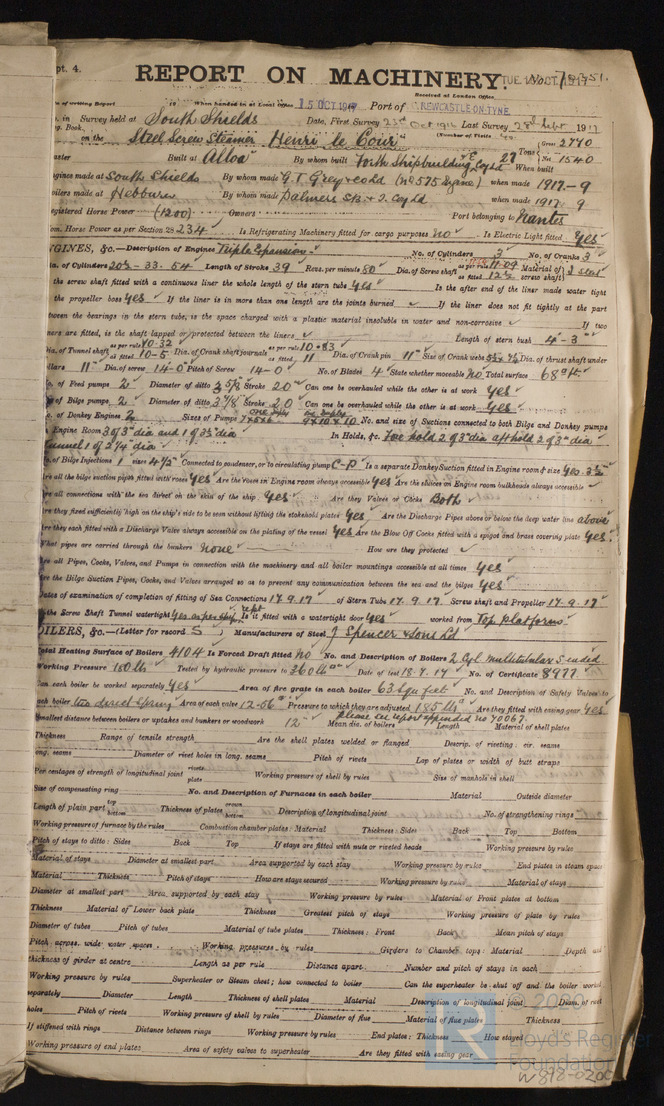 pt. 4.
REPORT ON MACHINERY.
TUE. 16 OCT. 1917
Received at London Office
of writing Report 19 When handed in at Local Office 15 OCT 1917 Port of NEWCASTLE-ON-TYNE
in Survey held at South Shields Date, First Survey 23rd Oct 1916 Last Survey 28th Sept 1917
Book. (Number of Visits
on the Steel Screw Steamer Henri le Cour Tons Gross 2770 Net 1540
aster Built at Alloa By whom built Forth Shipbuilding & E Coy Ld When built
ngines made at South Shields By whom made G. T. Grey & Co Ld (No 575 Engine) when made 1917-9
oilers made at Hebburn By whom made Palmers S.B. & I. Coy Ld when made 1917 9
egistered Horse Power (1200) Owners Port belonging to Nantes
om. Horse Power as per Section 28 234 Is Refrigerating Machinery fitted for cargo purposes No Is Electric Light fitted Yes
NGINES, &c.—Description of Engines Triple Expansion No. of Cylinders 3 No. of Cranks 3
ia. of Cylinders 20½ - 33 - 54 Length of Stroke 39 Revs. per minute 80 Dia. of Screw shaft as per rule as fitted 12½ Material of screw shaft Steel
the screw shaft fitted with a continuous liner the whole length of the stern tube Yes Is the after end of the liner made water tight
the propeller boss Yes If the liner is in more than one length are the joints burned If the liner does not fit tightly at the part
tween the bearings in the stern tube, is the space charged with a plastic material insoluble in water and non-corrosive If two
ners are fitted, is the shaft lapped or protected between the liners Length of stern bush 4-3"
Dia. of Tunnel shaft as per rule 10.32 as fitted 10-5 Dia. of Crank shaft journals as per rule 10.83 as fitted 11 Dia. of Crank pin 11" Size of Crank webs Dia. of thrust shaft under
ollars 11" Dia. of screw 14-0 Pitch of Screw 14-0 No. of Blades 4 State whether moveable No Total surface 68 ft
o. of Feed pumps 2 Diameter of ditto 3 5/8 Stroke 20" Can one be overhauled while the other is at work Yes
o. of Bilge pumps 2 Diameter of ditto 3 7/8 Stroke 20 Can one be overhauled while the other is at work Yes
o. of Donkey Engines 2 Sizes of Pumps No. and size of Suctions connected to both Bilge and Donkey pumps
Engine Room 3 of 3" dia and 1 of 3½ dia In Holds, &c. Fore hold 2 of 3" dia aft hold 2 of 3" dia
Tunnel 1 of 2½" dia
o. of Bilge Injections 1 sizes 4½" Connected to condenser, or to circulating pump C-P Is a separate Donkey Suction fitted in Engine room & size Yes 3½"
re all the bilge suction pipes fitted with roses Yes Are the roses in Engine room always accessible Yes Are the sluices on Engine room bulkheads always accessible
re all connections with the sea direct on the skin of the ship Yes Are they Valves or Cocks Both
re they fixed sufficiently high on the ship's side to be seen without lifting the stokehold plates Yes Are the Discharge Pipes above or below the deep water line above
re they each fitted with a Discharge Valve always accessible on the plating of the vessel Yes Are the Blow Off Cocks fitted with a spigot and brass covering plate Yes
What pipes are carried through the bunkers None How are they protected
re all Pipes, Cocks, Valves, and Pumps in connection with the machinery and all boiler mountings accessible at all times Yes
re the Bilge Suction Pipes, Cocks, and Valves arranged so as to prevent any communication between the sea and the bilges Yes
Dates of examination of completion of fitting of Sea Connections 17.9.17 of Stern Tube 17.9.17 Screw shaft and Propeller 17.9.17
the Screw Shaft Tunnel watertight Yes as per ship rept Is it fitted with a watertight door Yes worked from Top platform
OILERS, &c.—(Letter for record S) Manufacturers of Steel J Spencer & Sons Ld
otal Heating Surface of Boilers 4104 Is Forced Draft fitted No No. and Description of Boilers 2 Cyl multitubular S ended
Working Pressure 180 lbs Tested by hydraulic pressure to 360 lbs Date of test 18.7.17 No. of Certificate 8977
Can each boiler be worked separately Yes Area of fire grate in each boiler 63 Sqr feet No. and Description of Safety Valves to
each boiler two direct Spring Area of each valve 12.56 Pressure to which they are adjusted 185 lbs Are they fitted with easing gear Yes
Please see report appended No 70067
Smallest distance between boilers or uptakes and bunkers or woodwork 12" Mean dia. of boilers Length Material of shell plates
Thickness Range of tensile strength Are the shell plates welded or flanged Descrip. of riveting: cir. seams
long. seams Diameter of rivet holes in long. seams Pitch of rivets Lap of plates or width of butt straps
Per centages of strength of longitudinal joint rivets plate Working pressure of shell by rules Size of manhole in shell
Size of compensating ring No. and Description of Furnaces in each boiler Material Outside diameter
Length of plain part top bottom Thickness of plates crown bottom Description of longitudinal joint No. of strengthening rings
Working pressure of furnace by the rules Combustion chamber plates: Material Thickness: Sides Back Top Bottom
Pitch of stays to ditto: Sides Back Top If stays are fitted with nuts or riveted heads Working pressure by rules
Material of stays Diameter at smallest part Area supported by each stay Working pressure by rules End plates in steam space
Material Thickness Pitch of stays How are stays secured Working pressure by rules Material of stays
Diameter at smallest part Area supported by each stay Working pressure by rules Material of Front plates at bottom
Thickness Material of Lower back plate Thickness Greatest pitch of stays Working pressure of plate by rules
Diameter of tubes Pitch of tubes Material of tube plates Thickness: Front Back Mean pitch of stays
Pitch across wide water spaces Working pressures by rules Girders to Chamber tops: Material Depth and
thickness of girder at centre Length as per rule Distance apart Number and pitch of stays in each
Working pressure by rules Superheater or Steam chest; how connected to boiler Can the superheater be shut off and the boiler worked
separately Diameter Length Thickness of shell plates Material Description of longitudinal joint Diam. of rivet
holes Pitch of rivets Working pressure of shell by rules Diameter of flue Material of flue plates Thickness
If stiffened with rings Distance between rings Working pressure by rules End plates: Thickness How stayed
Working pressure of end plates Area of safety valves to superheater Are they fitted with easing gear
Lloyd's Register
Foundation
W878-0200